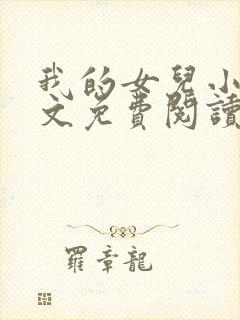 我的女兒小
文免費閱讀
羅章龍